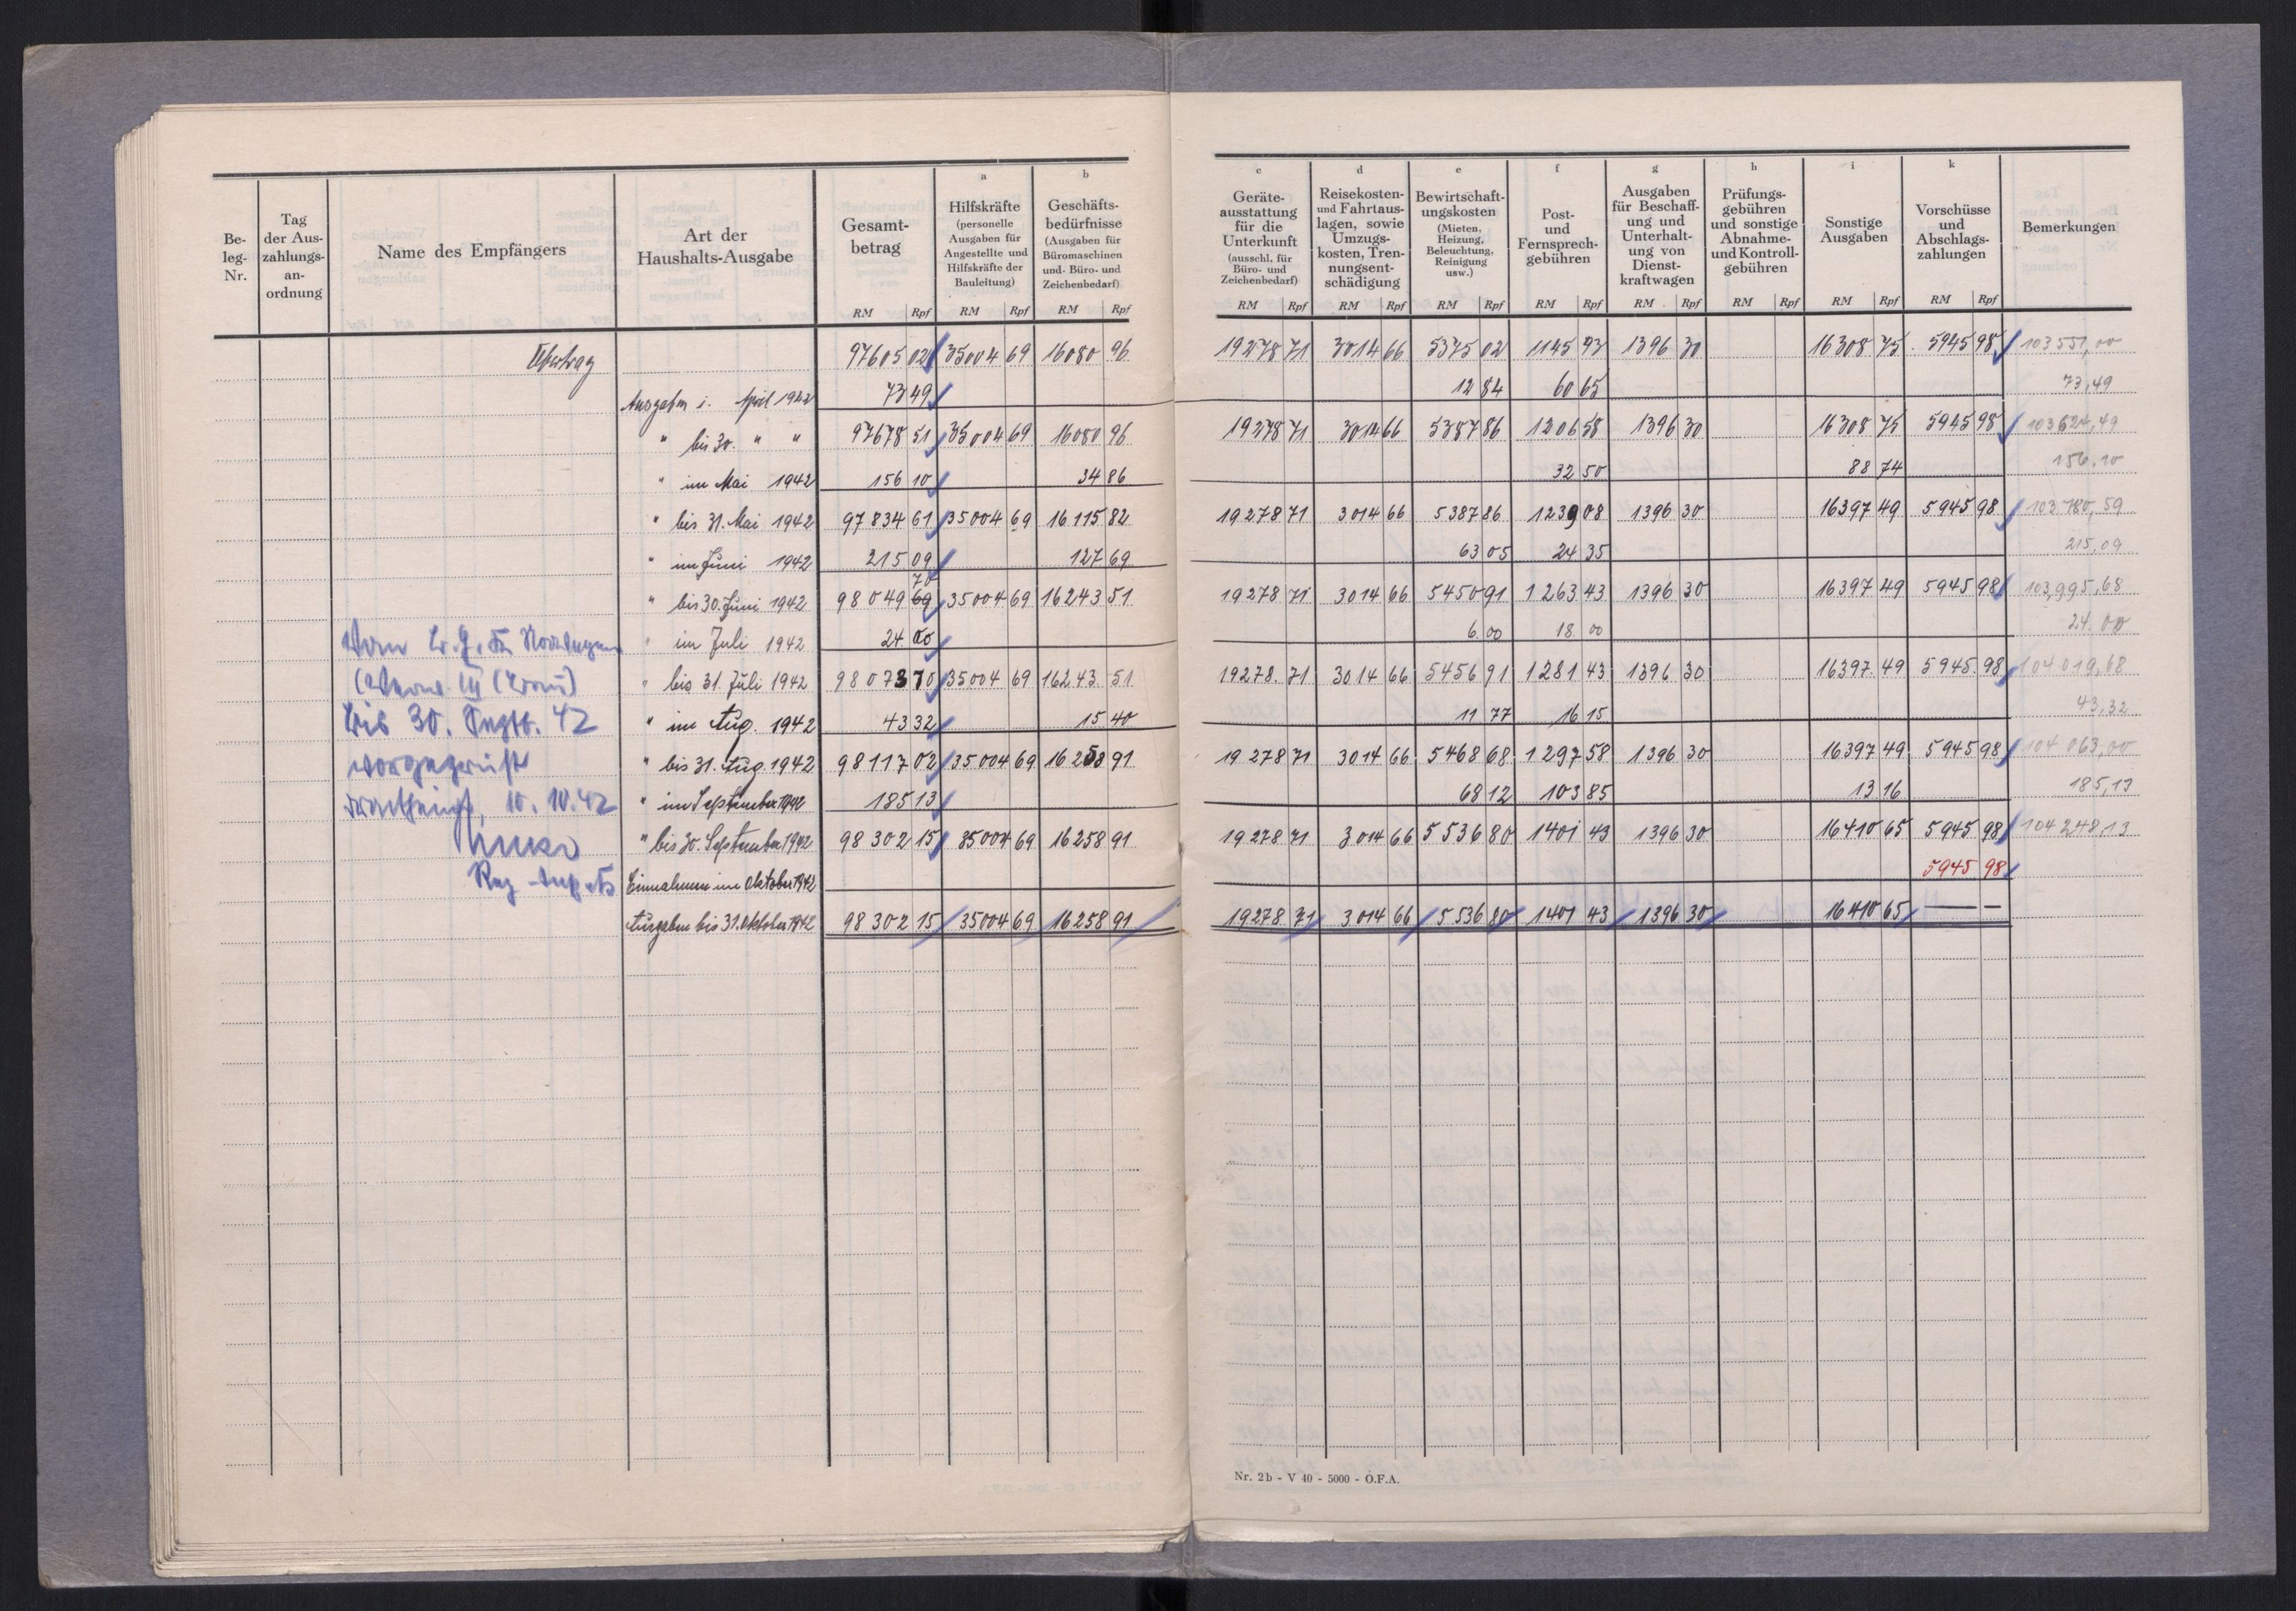 Be-
leg-
Nr.
Tag
der Aus-
zahlungs-
an-
ordnung
Name des Empfängers
Art der
Haushalts-Ausgabe
Gesamt-
betrag
RM Rpf
a
Hilfskräfte
(personelle
Ausgaben für
Angestellte und
Hilfskräfte der
Bauleitung)
RM Rpf
b
Geschäfts-
bedürfnisse
(Ausgaben für
Büromaschinen
und- Büro- und
Zeichenbedarf)
RM Rpf
c
Geräte-
ausstattung
für die
Unterkunft
(ausschl. für
Büro- und
Zeichenbedarf)
RM Rpf
d
Reisekosten-
und Fahrtaus-
lagen, sowie
Umzugs-
kosten, Tren-
nungsent-
schädigung
RM Rpf
e
Bewirtschaft-
ungskosten
(Mieten,
Heizung,
Beleuchtung,
Reinigung
usw.)
RM Rpf
f
Post-
und
Fernsprech-
gebühren
RM Rpf
g
Ausgaben
für Beschaff-
ung und
Unterhalt-
ung von
Dienst-
kraftwagen
RM Rpf
h
Prüfungs-
gebühren
und sonstige
Abnahme-
und Kontroll-
gebühren
RM Rpf
i
Sonstige
Ausgaben
RM Rpf
k
Vorschüsse
und
Abschlags-
zahlungen
RM Rpf
Bemerkungen
Übertrag 97605 02 35004 69 16080 96 19278 71 3014 66 5375 02 1145 93 1396 30 16308 75 5945 98 103551,00
Ausgaben i. April 1942 73 49 12 84 60 65 73,49
" bis 30. " " 97678 51 35004 69 16080 96 19278 71 3014 66 5387 86 1206 58 1396 30 16308 75 5945 98 103624,49
" im Mai 1942 156 10 34 86 32 50 88 74 156.10
" bis 31. Mai 1942 97834 61 35004 69 16115 82 19278 71 3014 66 5387 86 1239 08 1396 30 16397 49 5945 98 103780,59
" im Juni 1942 215 09 127 69 63 05 24 35 215,09
" bis 30. Juni 1942 98049 69 70 35004 69 16243 51 19278 71 3014 66 5450 91 1263 43 1396 30 16397 49 5945 98 103,995,68
" im Juli 1942 24 00 6.00 18.00 24.00
" bis 31. Juli 1942 98073 70 35004 69 16243.51 19278.71 3014 66 5456 91 1281 43 1396 30 16397.49 5945.98 104019,68
bis 30. Septb. 42 " im Aug. 1942 43 32 15 40 11 77 16 15 43,32
" bis 31. Aug. 1942 98117 02 35004 69 16258 91 19278 71 3014 66 5468 68 1297 58 1396 30 16397 49 5945 98 104 063,00
10. 10. 42 " im September 1942 185 13 68 12 103 85 13 16 185,13
" bis 30. September 1942 98302 15 35004 69 16258 91 19278 71 3014 66 5536 80 1401 43 1396 30 16410 65 5945 98 104248,13
Einnahmen im Oktober 1942 5945 98
Ausgaben bis 31. Oktober 1942 98302 15 35004 69 16258 91 19278 71 3014 66 5536 80 1401 43 1396 30 16410 65 — —
Nr. 2b - V 40 - 5000 - O.F.A.